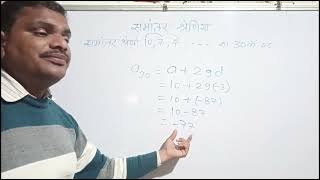 समांतर श्रेणियां
समांतर श्रेणी 10, 7, 4, --- का 30वां पद
a₃₀ = a + 29d
= 10 + 29(-3)
= 10 + (-87)
= 10 - 87
= -77